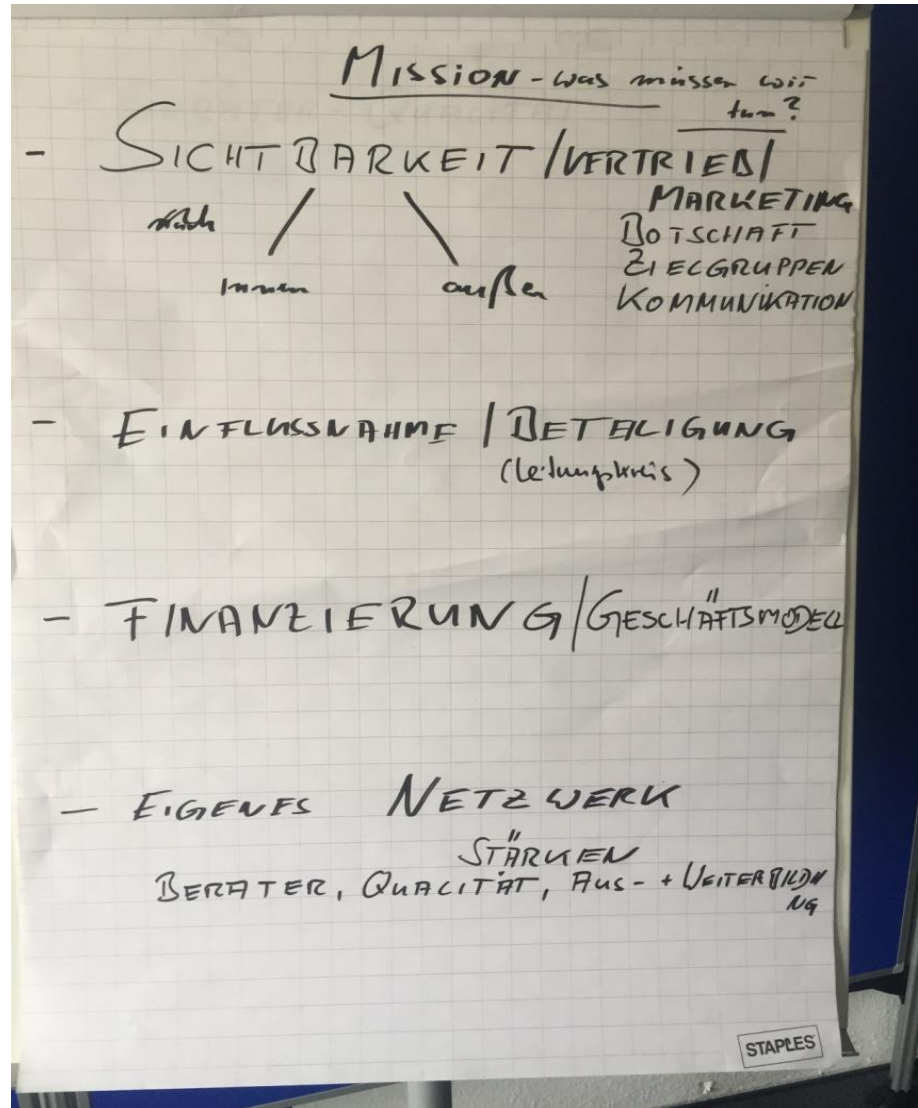 MISSION - was müssen wir
tun?
- SICHTBARKEIT / VERTRIEB /
MARKETING
nach
BOTSCHAFT
ZIELGRUPPEN
innen außen
KOMMUNIKATION
- EINFLUSSNAHME / BETEILIGUNG
(Leitungskreis)
- FINANZIERUNG / GESCHÄFTSMODELL
- EIGENES NETZWERK
STÄRKEN
BERATER, QUALITÄT, AUS- + WEITERBILDU
NG
STAPLES